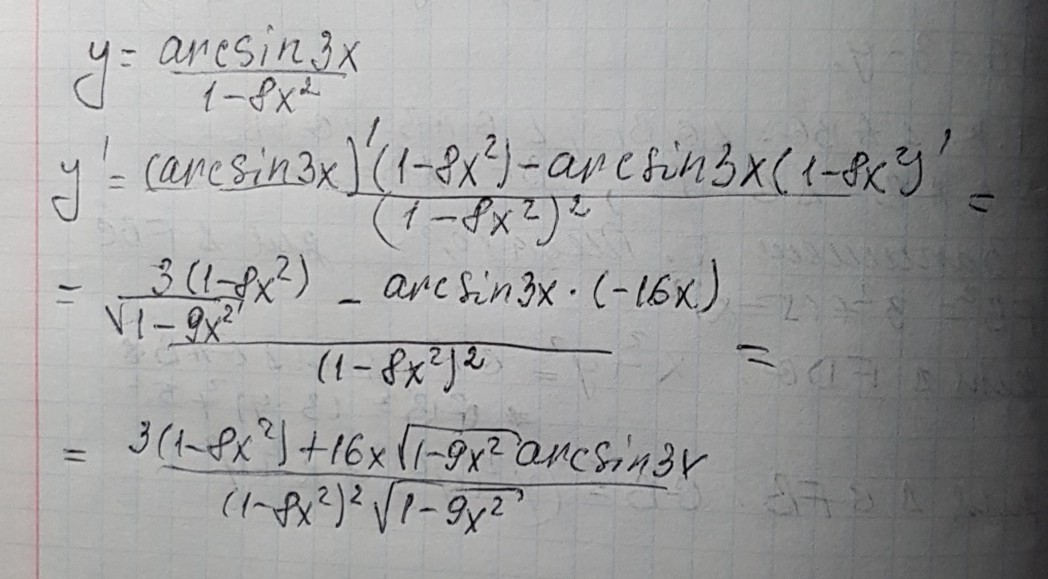 y = arcsin3x / 1-8x²
y' = (arcsin3x)'(1-8x²) - arcsin3x(1-8x²)' / (1-8x²)² =
= 3(1-8x²) / √1-9x² - arcsin3x · (-16x) / (1-8x²)² =
= 3(1-8x²) + 16x √1-9x² arcsin3x / (1-8x²)² √1-9x²